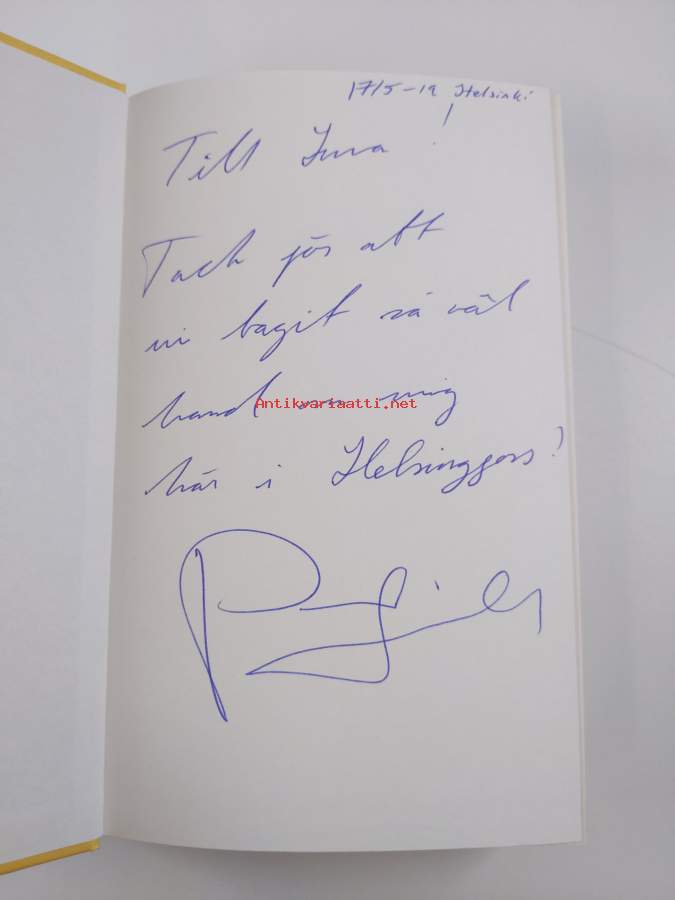 17/5-19 Helsinki
Till !
Tack för att
ni tagit så väl
hand om mig
Antikvariaatti.net
här i Helsingfors!